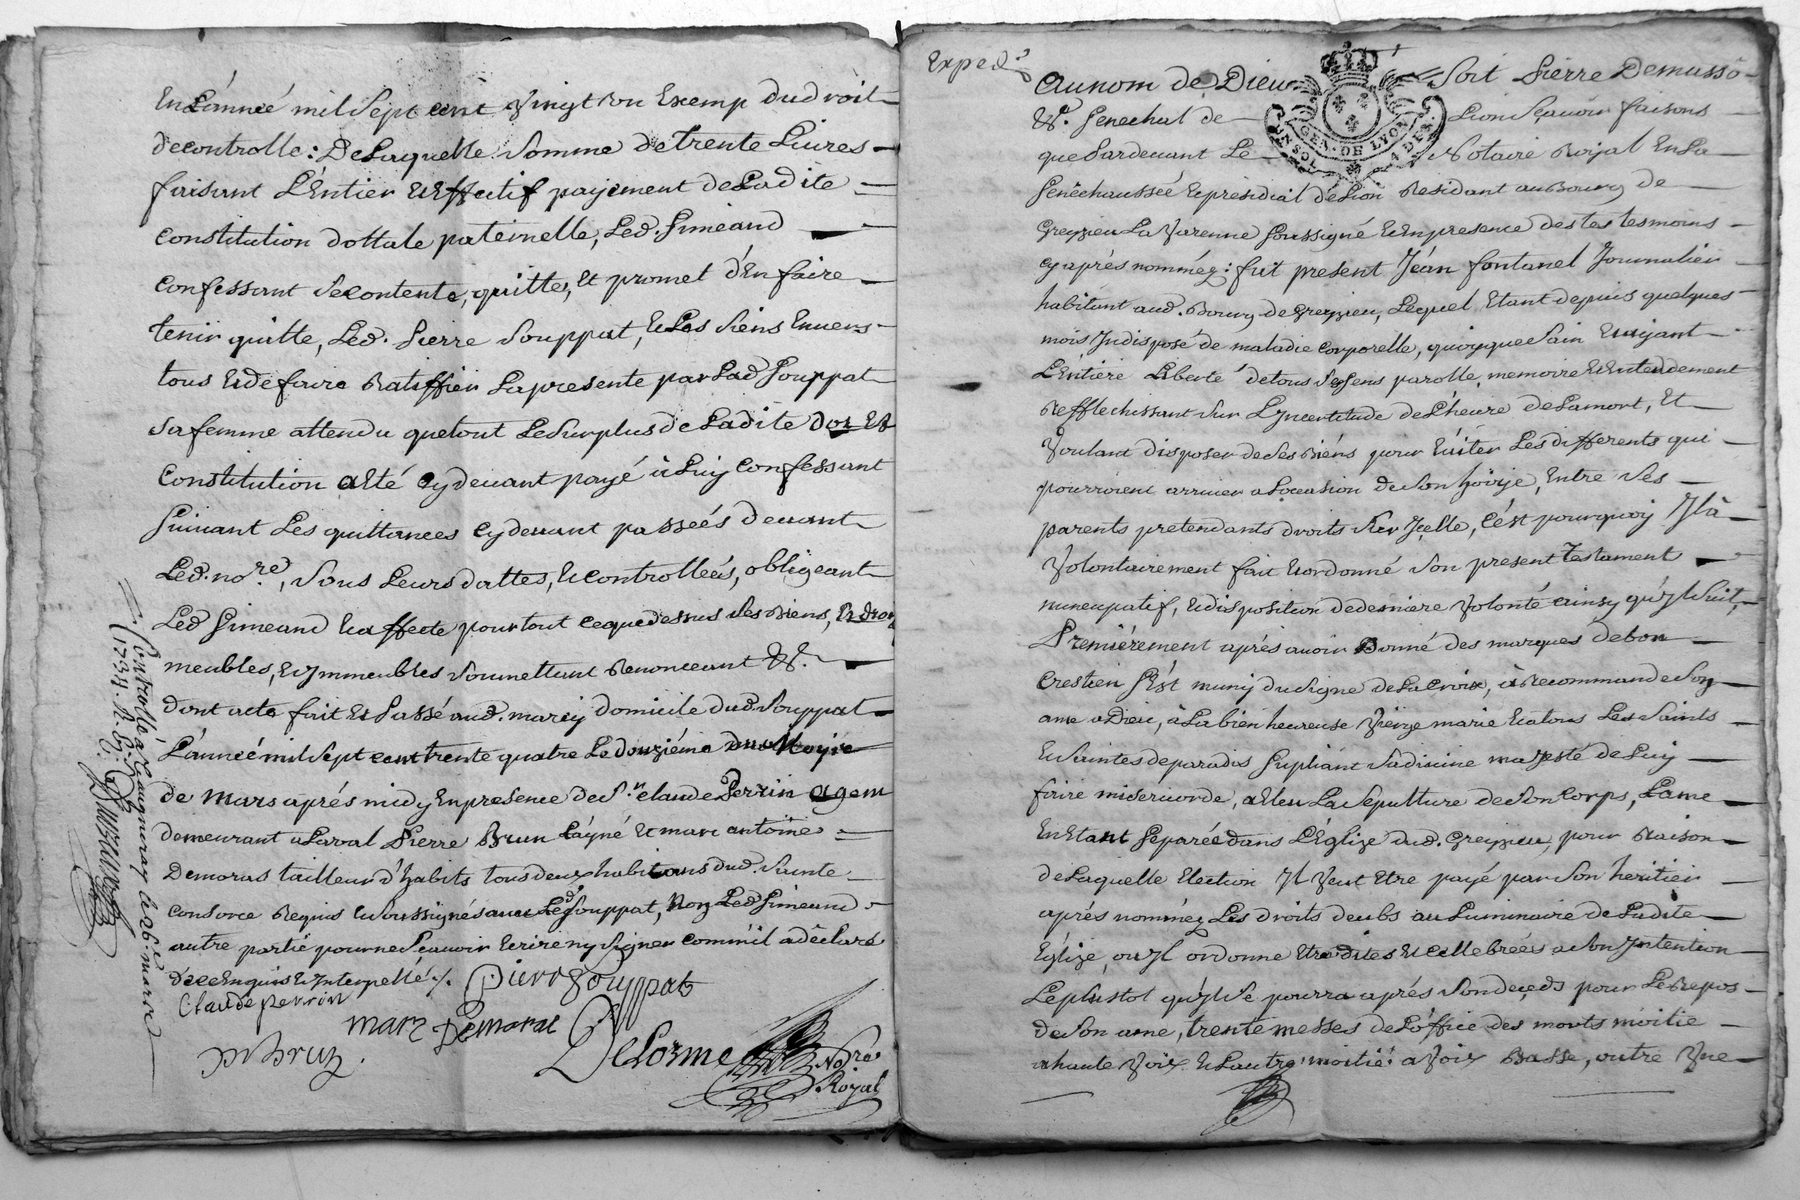 En Lánnée mil Sept cent Vingt un Exemp du droit
de controlle: De Laquelle Somme de trente Livres
faisant L'Entier et Effectif payement de Ladite
constitution dottale paternelle, Led. Simeand
confessant Se contente, quitte, et promet d'En faire
tenir quitte, Led. Pierre Souppat, et Les Siens Envers
tous et de faire Ratiffier La presente par Lad Souppat
Sa femme attendu que tout Le Surplus de Ladite Dot et
constitution a Eté cy devant payé à Luy confessant
Suivant Les quittances cy devant passées devant
Led. no.re, Sous Leurs dattes, et controllées, obligeant
Led Simeand et affecte pour tout ce que dessus Ses Biens,
meubles, et Immeubles Soumettant Renonceant &.
dont acte fait et Passé aud. marcy domicile dud. Souppat
L'année mil Sept cent trente quatre Le douziéme
de Mars aprés midy En presence de S.r claude Perrin agem
demeurant a Laval Pierre Brun L'ayné et marc antoine
Demoras tailleur d'habits tous deux habitans dud. Sainte
consorce Requis et Soussignés avec Led. Souppat, Non Led Simeand
autre partie pour ne Scavoir Ecrire ny Signer comm'il a déclaré
de ce Enquis et Interpellé ./.
Pierre Souppat
Claude perrin
marc Demoras
P Brun
DeLorme No.re Royal
Controllé a le 26.e marse
1734. R.
Exped.
Au nom de Dieu Soit Pierre Demusso
&. Senechal de Lion Sçavoir faisons
GEN. DE LYON
que Pardevant Le Notaire Royal En La
Senéchaussée et présidial de Lion Residant au Bourg de
Greyzieu La Varenne Soussigné et En presence des tes tesmoins
cy aprés nomméz: fut present Jéan fontanel Journalier
habitant aud. Bourg de Greyzieu, Lequel Etant depuis quelques
mois Jndisposé de maladie corporelle, quoyque Sain Et ayant
L'Entiére Liberté de tous Ses Sens parolle, memoire et Entendement
Refflechissant Sur L'Jncertitude de L'heure de La mort, Et
Voulant disposer de Ses Biéns pour Eviter Les differents qui
pourroient arriver a L'ocasion de Son hoirye, Entre Ses
parents pretendants droits Sur Jcelle, C'ést pourquoy Jl à
Volontairement fait Et ordonné Son present Testament
nuncupatif, Et disposition de derniere Volonté ainsy qu'Jl Suit,
Premiérement aprés avoir Donné des marques de bon
Crestien S'ést muny du Signe de La Croix, à Recommande Son
ame a Dieu, à La bien heureuse Viérge marie et a tous Les Saints
Et Saintes de paradis Supliant Sa divine majesté de Luy
faire misericorde, a Eleu La Sepulture de Son Corps, L'ame
En Etant Separée dans L'Églize dud. Greyzieu, pour Raison
de Laquelle Election Jl Veut Etre payé par Son heritier
aprés nomméz Les droits deubs au Luminaire de Ladite
Eglize, où Jl ordonne Etre dites et cellebrées a Son Jntention
Le plustot qu'Jl Se pourra aprés Son decéds pour Le Repos
de Son ame, trente messes de L'office des morts moitie
a haute Voix Et L'autre moitié a Voix Basse, outre Vne